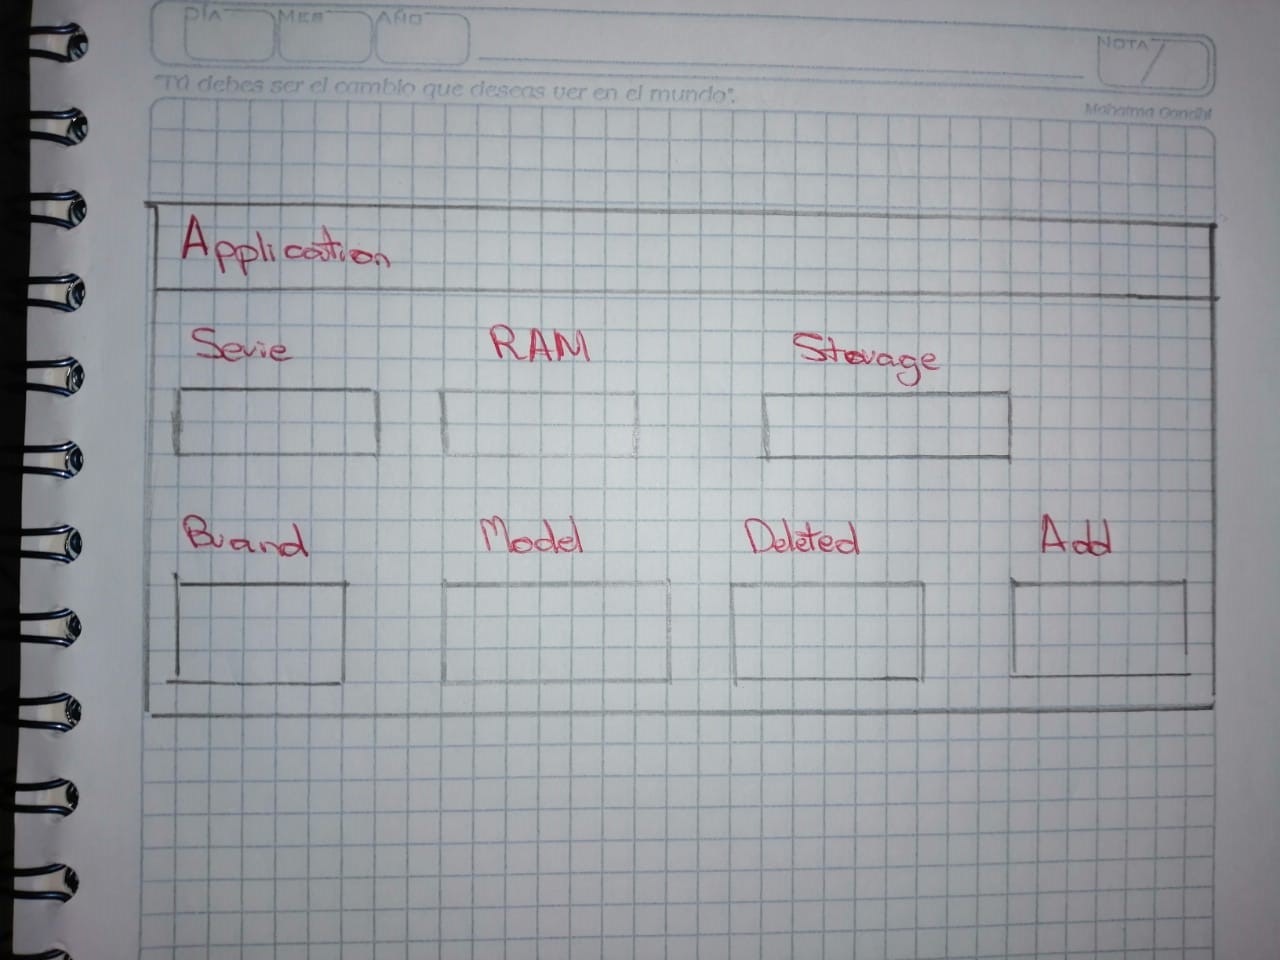 DÍA MES AÑO NOTA
"Tú debes ser el cambio que deseas ver en el mundo".
Mahatma Gandhi
Application
Serie RAM Storage
Brand Model Deleted Add